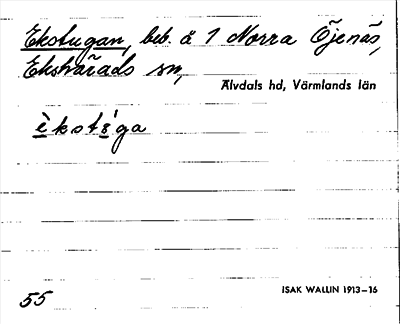 Ekstugan, beb. å 1 Norra Öjenäs,
Ekshärads sn,
Älvdals hd, Värmlands län
55
ISAK WALLIN 1913–16